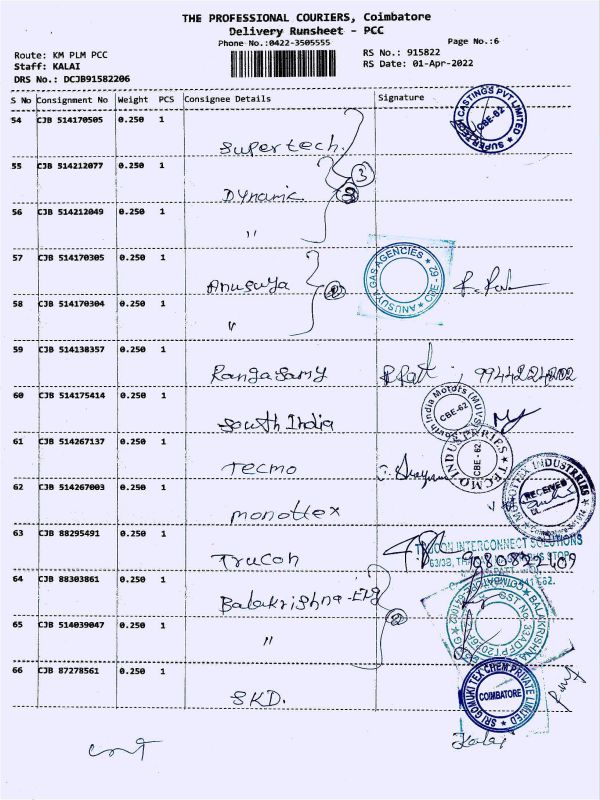 THE PROFESSIONAL COURIERS, Coimbatore
Delivery Runsheet - PCC
Phone No.:0422-3505555
Page No.:6
Route: KM PLM PCC
RS No.: 915822
Staff: KALAI
RS Date: 01-Apr-2022
DRS No.: DCJB91582206
S No Consignment No Weight PCS Consignee Details Signature
54 CJB 514170505 0.250 1
Supertech.
SUPERTECH CASTINGS PVT LIMITED CBE-62
55 CJB 514212077 0.250 1
Dynamic
3
56 CJB 514212049 0.250 1
"
57 CJB 514170305 0.250 1
Anusuya
ANUSUYA GAS AGENCIES CBE - 62
58 CJB 514170304 0.250 1
"
59 CJB 514138357 0.250 1
Rangasamy
60 CJB 514175414 0.250 1
South India
South India Motors CBE-62
61 CJB 514267137 0.250 1
Tecmo
TECMO INDUSTRIES CBE - 62
62 CJB 514267003 0.250 1
monottex
MONOTTEX INDUSTRIES RECEIVED
63 CJB 88295491 0.250 1
Trucon
TRUCON INTERCONNECT SOLUTIONS
9080822409
64 CJB 88303861 0.250 1
Balakrishna-Eng
BALAKRISHNA
65 CJB 514039047 0.250 1
"
66 CJB 87278561 0.250 1
SKD.
SRI GOMUKI TEX CHEM PRIVATE LIMITED COIMBATORE
Kalai